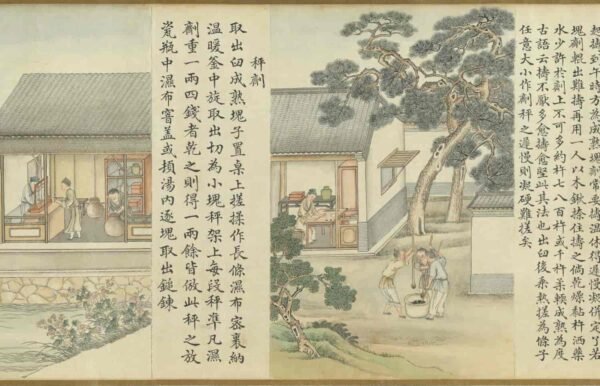 起擣到午時方為成熟塊劑常要擣溫休得遲慢凝併定了若
塊劑輥出難擣再用一人以木鍬捺住擣之倘乾燥黏杵洒藥
水少許於劑上不可多約杵七八百杵或千杵柔輭成熟為度
古語云擣不厭多愈擣愈堅此其法也出臼後乘熱搓為條子
任意大小作劑秤之遲慢則凝硬難搓矣
秤劑
取出臼成熟塊子置桌上搓揉作長條濕布密裹納
溫暖釜中旋取出切為小塊秤架上每段秤準凡濕
劑重一兩四錢者乾之則得一兩餘皆倣此秤之放
瓷瓶中濕布密蓋或頓湯內逐塊取出鎚鍊